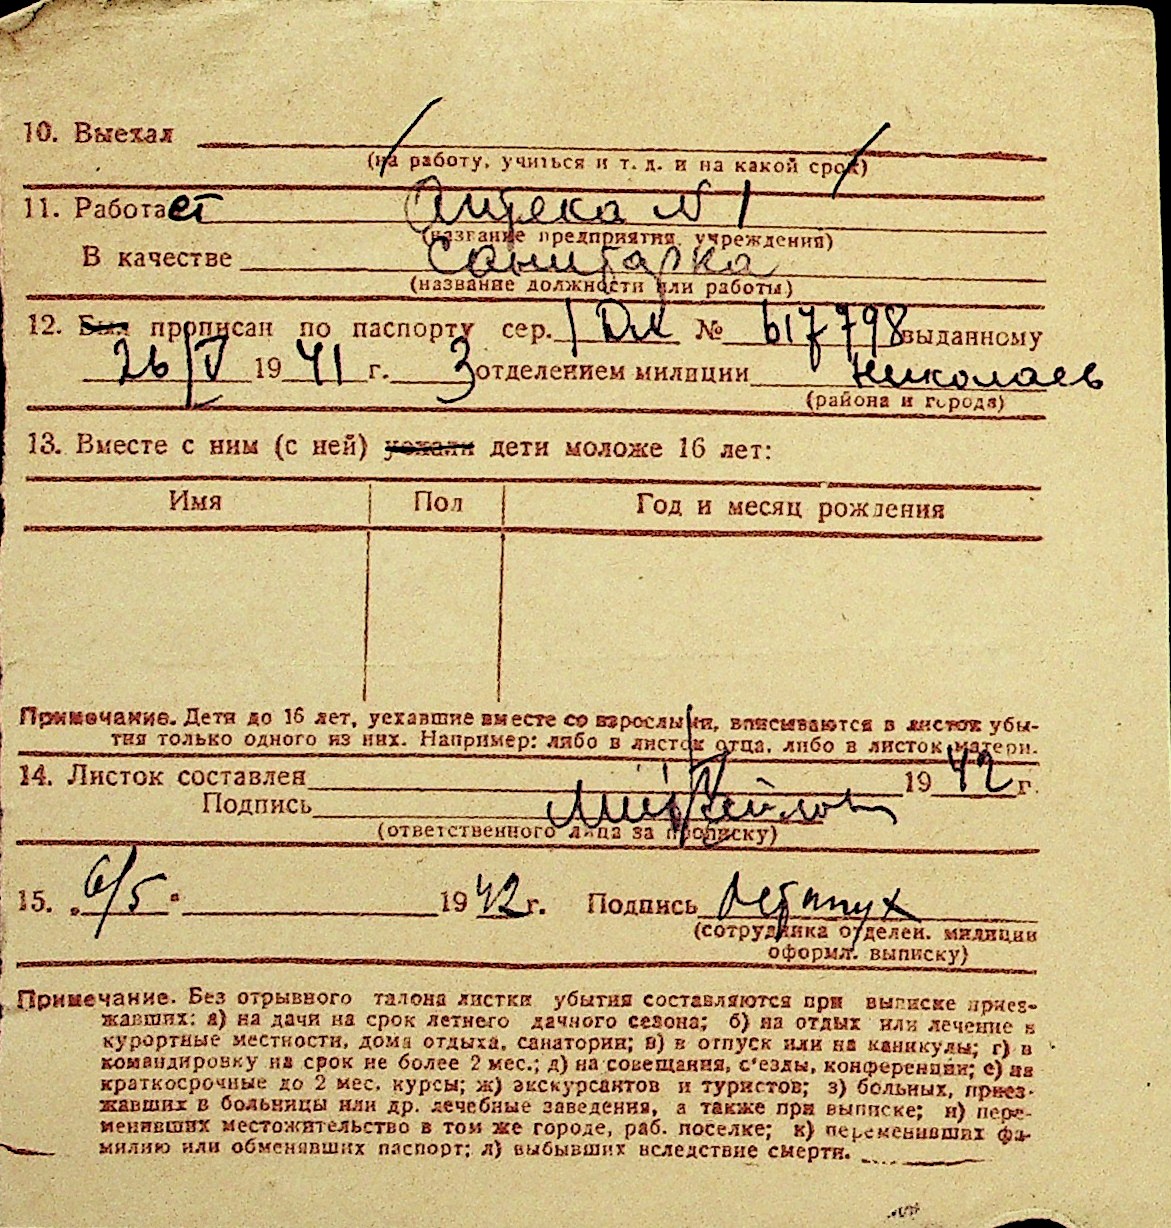 10. Выехал
(на работу, учиться и т. д. и на какой срок)
11. Работает Аптека № 1
(название предприятия, учреждения)
В качестве Санитарка
(название должности или работы)
12. Был прописан по паспорту сер. I ДК № 617798 выданному
26/V 1941 г. 3 отделением милиции Николаев
(района и города)
13. Вместе с ним (с ней) уехали дети моложе 16 лет:
Имя Пол Год и месяц рождения
Примечание. Дети до 16 лет, уехавшие вместе со взрослыми, вписываются в листок убы-
тия только одного из них. Например: либо в листок отца, либо в листок матери.
14. Листок составлен 1942 г.
Подпись
(ответственного лица за прописку)
15. „6/5" 1942 г. Подпись
(сотрудника отделен. милиции
оформл. выписку)
Примечание. Без отрывного талона листки убытия составляются при выписке приез-
жавших: а) на дачи на срок летнего дачного сезона; б) на отдых или лечение в
курортные местности, дома отдыха, санатории; в) в отпуск или на каникулы; г) в
командировку на срок не более 2 мес.; д) на совещания, с'езды, конференции; е) на
краткосрочные до 2 мес. курсы; ж) экскурсантов и туристов; з) больных, приез-
жавших в больницы или др. лечебные заведения, а также при выписке; и) пере-
менивших местожительство в том же городе, раб. поселке; к) переменивших фа-
милию или обменявших паспорт; л) выбывших вследствие смерти.